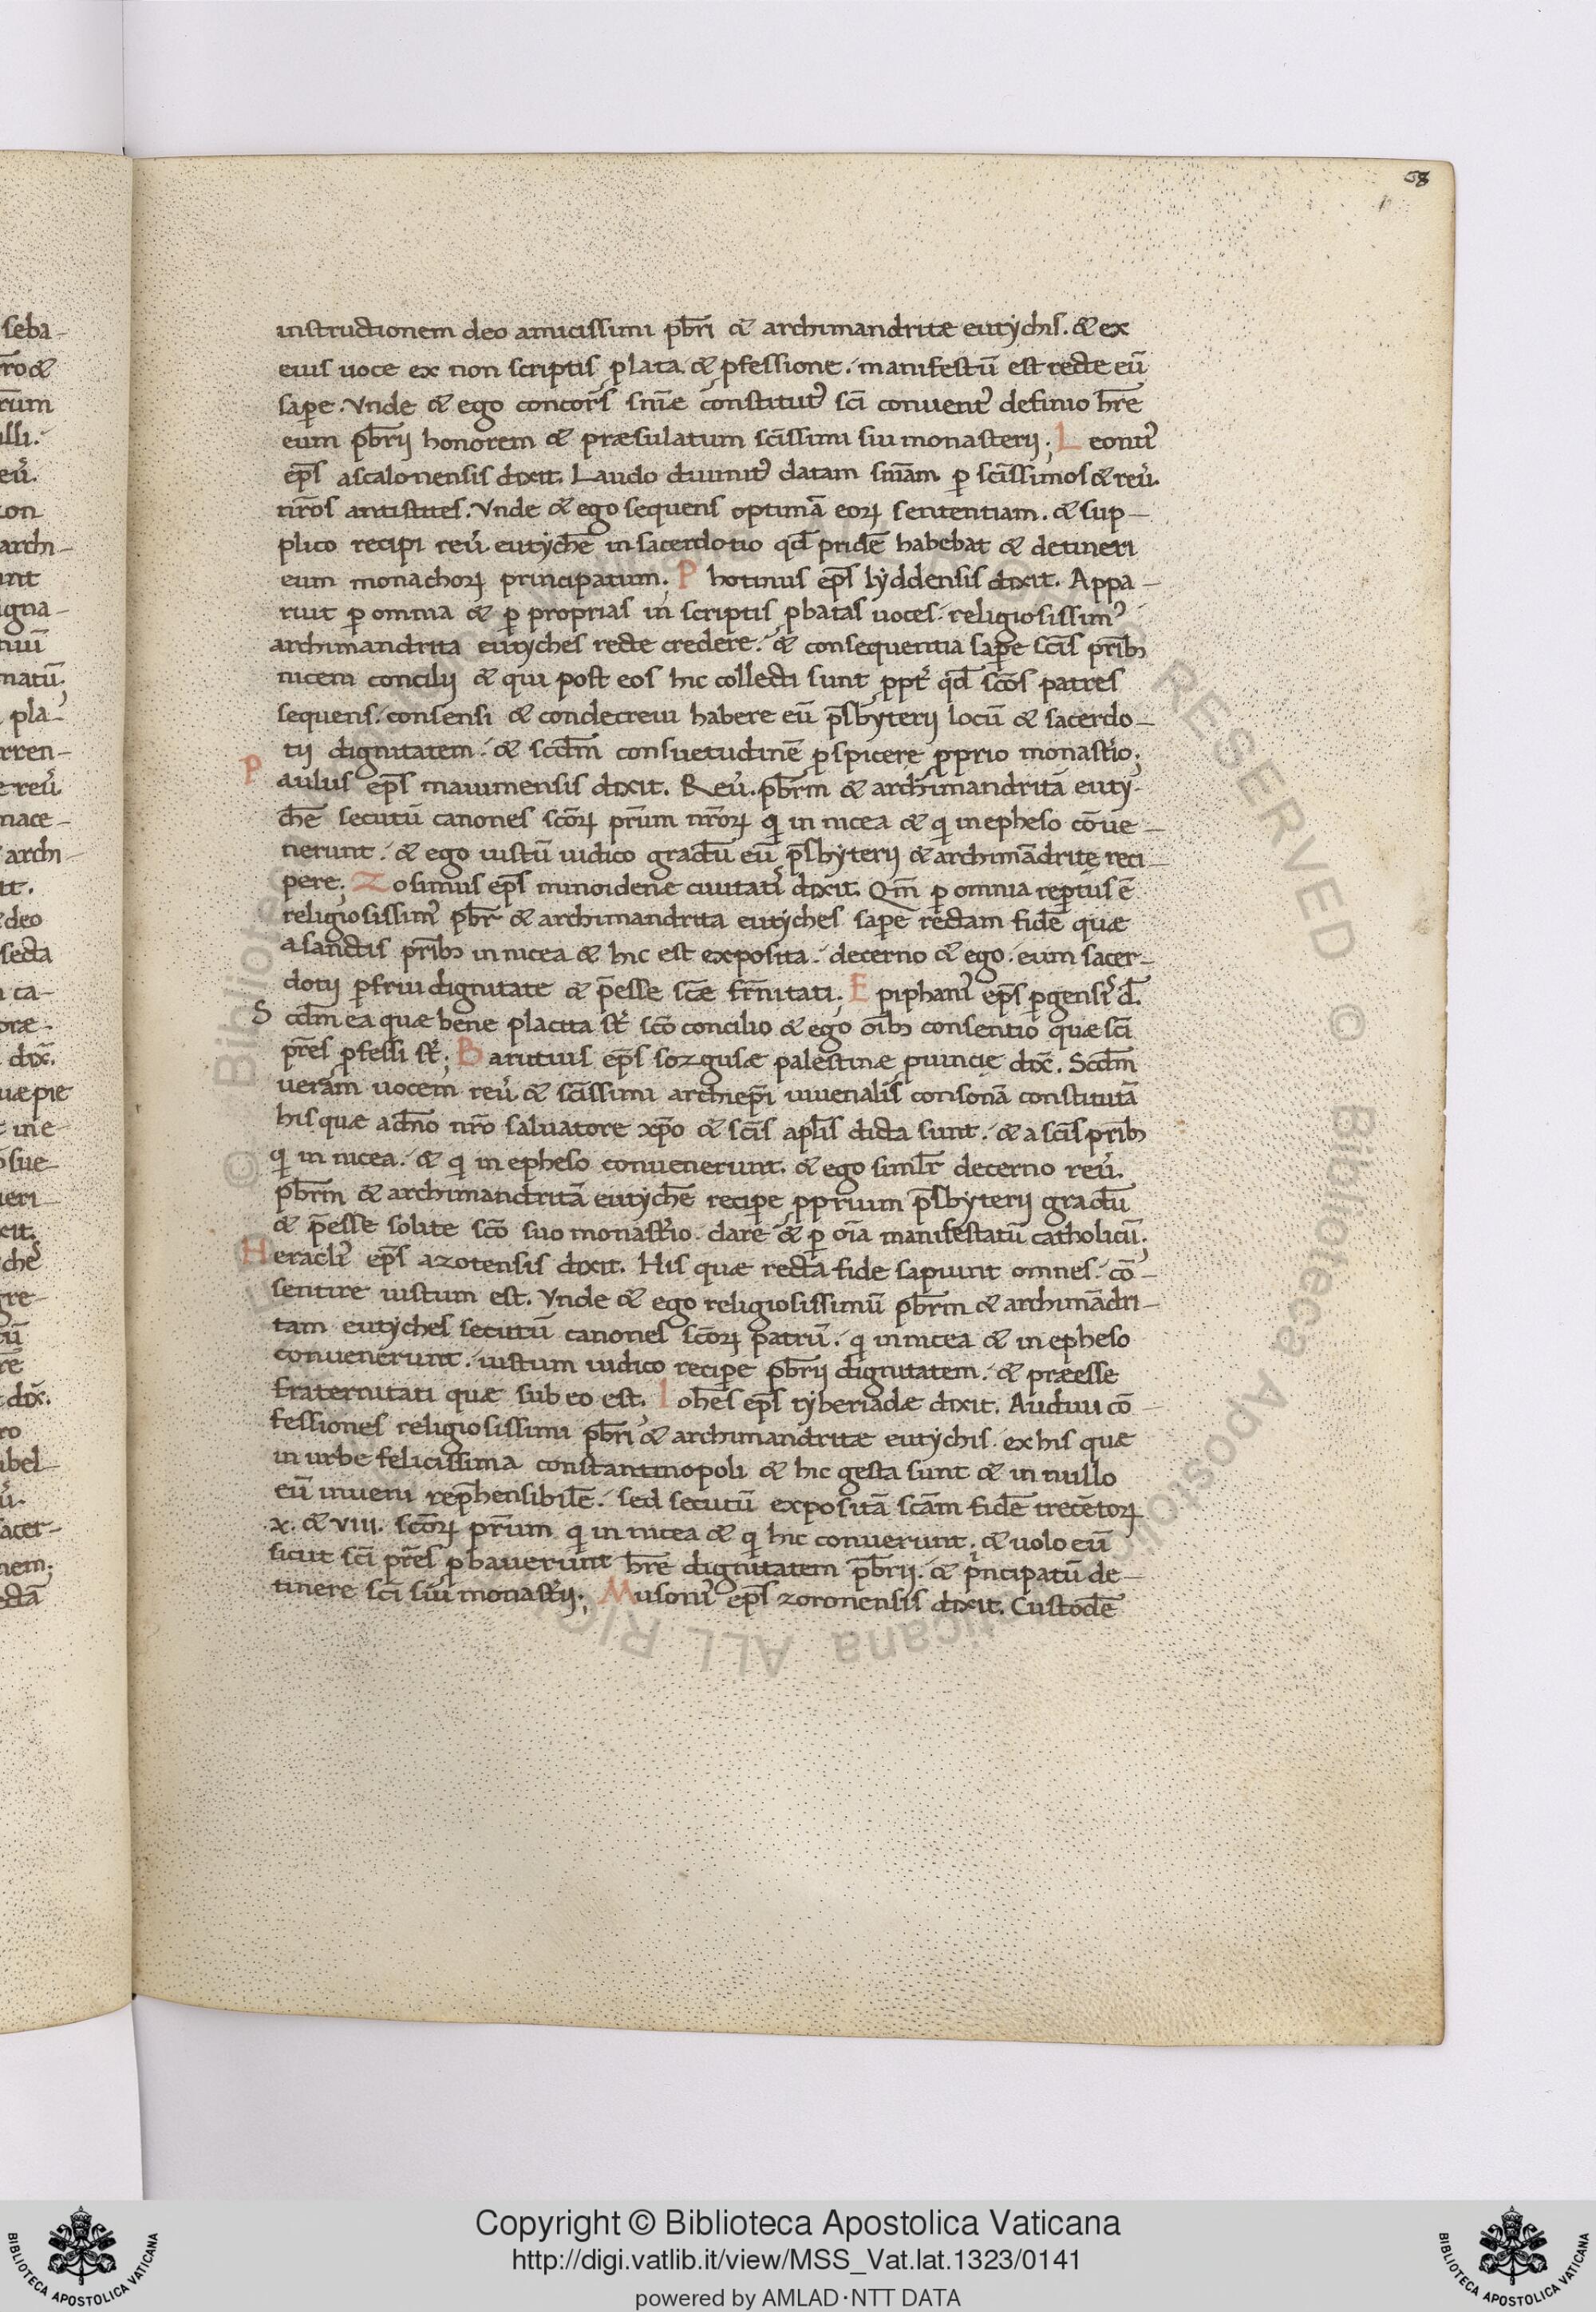 68
instructionem deo amicissimi pb̄ri & archimandritæ eutychis. & ex
eius uoce ex non scriptis plata & pfessione. manifestū est recte eū
sapere. Vnde & ego concors sn̄iæ constitut᾿ sc̄i conuent᾿ definio hr̄e
eum pb̄rij honorem & præsulatum sc̄issimi sui monasterij; Leonti᾿
ep̄s ascalonensis dixit. Laudo diuinit᾿ datam sn̄iam p sc̄issimos & reu᾿.
nr̄os antistites. Vnde & ego sequens optimā eoꝝ sententiam. & sup-
plico recipi reu᾿. eutychē in sacerdotio qd̄ pridē habebat & detineri
eum monachoꝝ principatum; Photinus ep̄s lyddensis dixit. Appa-
ruit ꝑ omnia & ꝑ proprias in scriptis ꝓbatas uoces. religiosissim᾿
archimandrita eutyches recte credere. & consequentia sapere sc̄is prīb;
nicem concilij & qui post eos hic collecti sunt ꝓpt᾿ qd̄ sc̄os patres
sequens. consensi & condecreui habere eū p̄sbyterij locū & sacerdo-
tij dignitatem. & scdm̄ consuetudinē ꝓspicere ꝓprio monast᾿io;
Paulus ep̄s maiumensis dixit. Reu᾿. pb̄rm & archimandritā euty-
chē secutū canones sc̄oꝝ pr̄um nr̄oꝝ q᾿ in nicea & q᾿ in epheso cōue-
nerunt. & ego iustū iudico gradū eū p̄sbyterij & archimādritę reci-
pere; Zosimus ep̄s minoidenæ ciuitat᾿ dixit. Qm̄ ꝑ omnia reptus ē
religiosissim᾿ pb̄r & archimandrita eutyches sapere rectam fidē quæ
a sanctis prīb; in nicea & hic est exposita. decerno & ego. eum sacer-
dotij ꝑfrui dignitate & p̄esse sc̄æ fr̄nitati; Epiphani᾿ ep̄s ꝑgensi᾿ d̄.
Scdm̄ ea quæ bene placita st᾿ sc̄o concilio & ego oīb; consentio quæ sc̄i
pr̄es ꝓfessi st᾿; Barutius ep̄s sozgusæ palestinæ puincię dix̄. Scdm̄
ueram uocem reu᾿. & sc̄issimi archiep̄i iuuenalis consonā constitutā
his quæ a dn̄o nr̄o saluatore xp̄o & sc̄is apl̄is dicta sunt. & a sc̄is prīb;
q᾿ in nicea. & q᾿ in epheso conuenerunt. & ego simil̄r decerno reu᾿.
pb̄rm & archimandritā eutychē recipe ꝓprium p̄sbyterij gradū
& p̄esse solite sc̄o suo monast᾿io. clare & ꝑ oīa manifestatū catholicū;
Heracli᾿ ep̄s azotensis dixit. His quæ recta fide sapiunt omnes. cō-
sentire iustum est. Vnde & ego religiosissimū pb̄rm & archimādri-
tam eutyches secutū canones sc̄oꝝ patrū. q᾿ in nicea & in epheso
conuenerunt. iustum iudico recipe pb̄rij dignitatem. & præesse
fraternitati quæ sub eo est. Ioh̄es ep̄s tyberiadæ dixit. Audiui cō-
fessiones religiosissimi pb̄ri & archimandritæ eutychis. ex his quæ
in urbe felicissima constantinopoli & hic gesta sunt & in nullo
eū inueni rep̄hensibilē. sed secutū expositā sc̄am fidē trecētoꝝ
.x. & viii. sc̄oꝝ pr̄um q᾿ in nicea & q᾿ hic conuerunt. & uolo eū
sicut sc̄i pr̄es ꝓbauerunt hr̄e dignitatem pb̄rij. & pncipatū de-
tinere sc̄i sui monast᾿ij; Musoni᾿ ep̄s zoronensis dixit. Custodē
Copyright © Biblioteca Apostolica Vaticana
http://digi.vatlib.it/view/MSS_Vat.lat.1323/0141
powered by AMLAD·NTT DATA